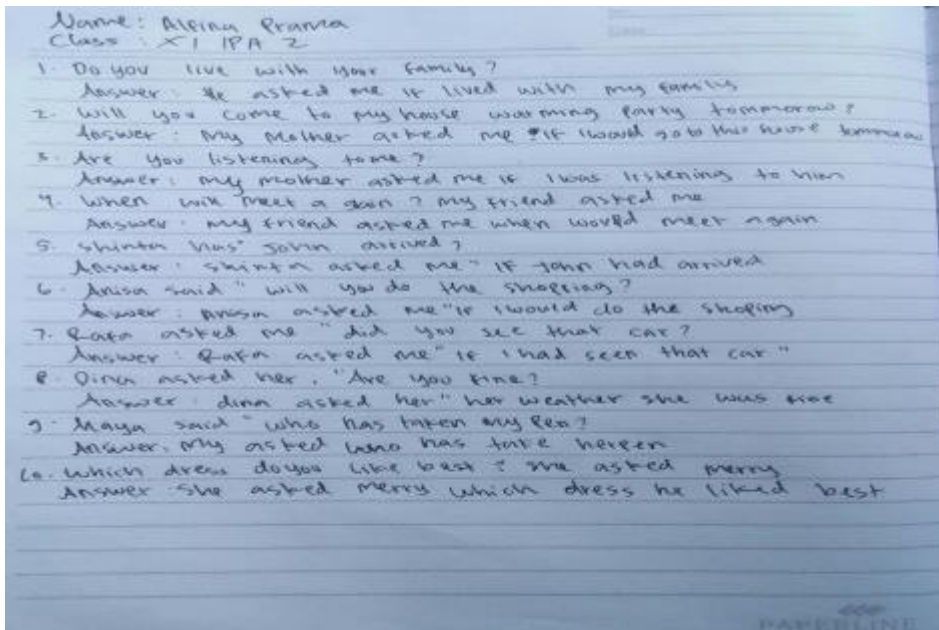 Name: Alfina Prama
Class : XI IPA 2
1. Do you live with your family?
Answer: He asked me if lived with my family
2. Will you come to my house warming party tommorow?
Answer: My mother asked me if I would go to this house tommorow
3. Are you listening to me?
Answer: My mother asked me if I was listening to him
4. When will meet a gain? my friend asked me
Answer: my friend asked me when would meet again
5. Shinta has" John arrived?
Answer: Shinta asked me " if John had arrived
6. Anisa said " will you do the shopping?
Answer: Anisa asked me "if I would do the shoping
7. Rafa asked me "did you see that car?
Answer: Rafa asked me "if I had seen that car"
8. Dina asked her. "Are you fine?
Answer: dina asked her" her weather she was fine
9. Maya said "who has taken my pen?
Answer. My asked who has take
10. Which dress do you like best? she asked merry
Answer she asked merry which dress he liked best
PAPERLINE